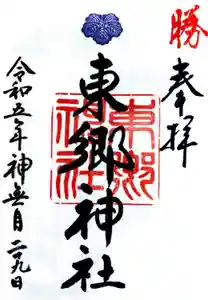 勝
奉拝
東郷神社
東郷神社
令和五年神無月二十九日